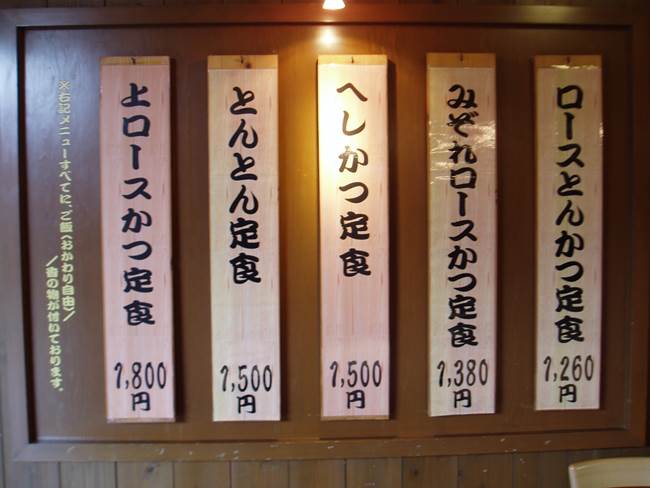 ロースとんかつ定食
1,260
円
みぞれロースかつ定食
1,380
円
へしかつ定食
1,500
円
とんとん定食
1,500
円
上ロースかつ定食
1,800
円
※右記メニューすべてに、ご飯（おかわり自由）/
/香の物が付いております。